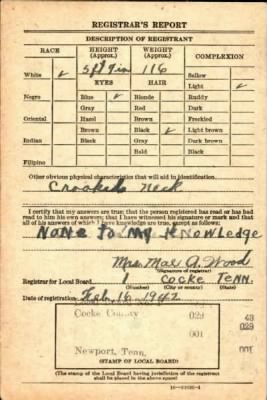 REGISTRAR'S REPORT
DESCRIPTION OF REGISTRANT
RACE HEIGHT (Approx.) WEIGHT (Approx.) COMPLEXION
5 ft 9 in 116
White ✓ EYES HAIR Sallow
Light ✓
Negro Blue ✓ Blonde Ruddy
Gray Red Dark
Oriental Hazel Brown Freckled
Brown Black ✓ Light brown
Indian Black Gray Dark brown
Bald Black
Filipino
Other obvious physical characteristics that will aid in identification.
Crooked Neck
I certify that my answers are true; that the person registered has read or has had
read to him his own answers; that I have witnessed his signature or mark and that
all of his answers of which I have knowledge are true, except as follows:
None To My Knowledge
Mrs. Mae A. Wood
(Signature of registrar)
Registrar for Local Board 1 Cocke Tenn.
(Number) (City or county) (State)
Date of registration Feb. 16 1942
Cocke County 029 43
029
001 001
Newport, Tenn.
(STAMP OF LOCAL BOARD)
(The stamp of the Local Board having jurisdiction of the registrant
shall be placed in the above space)